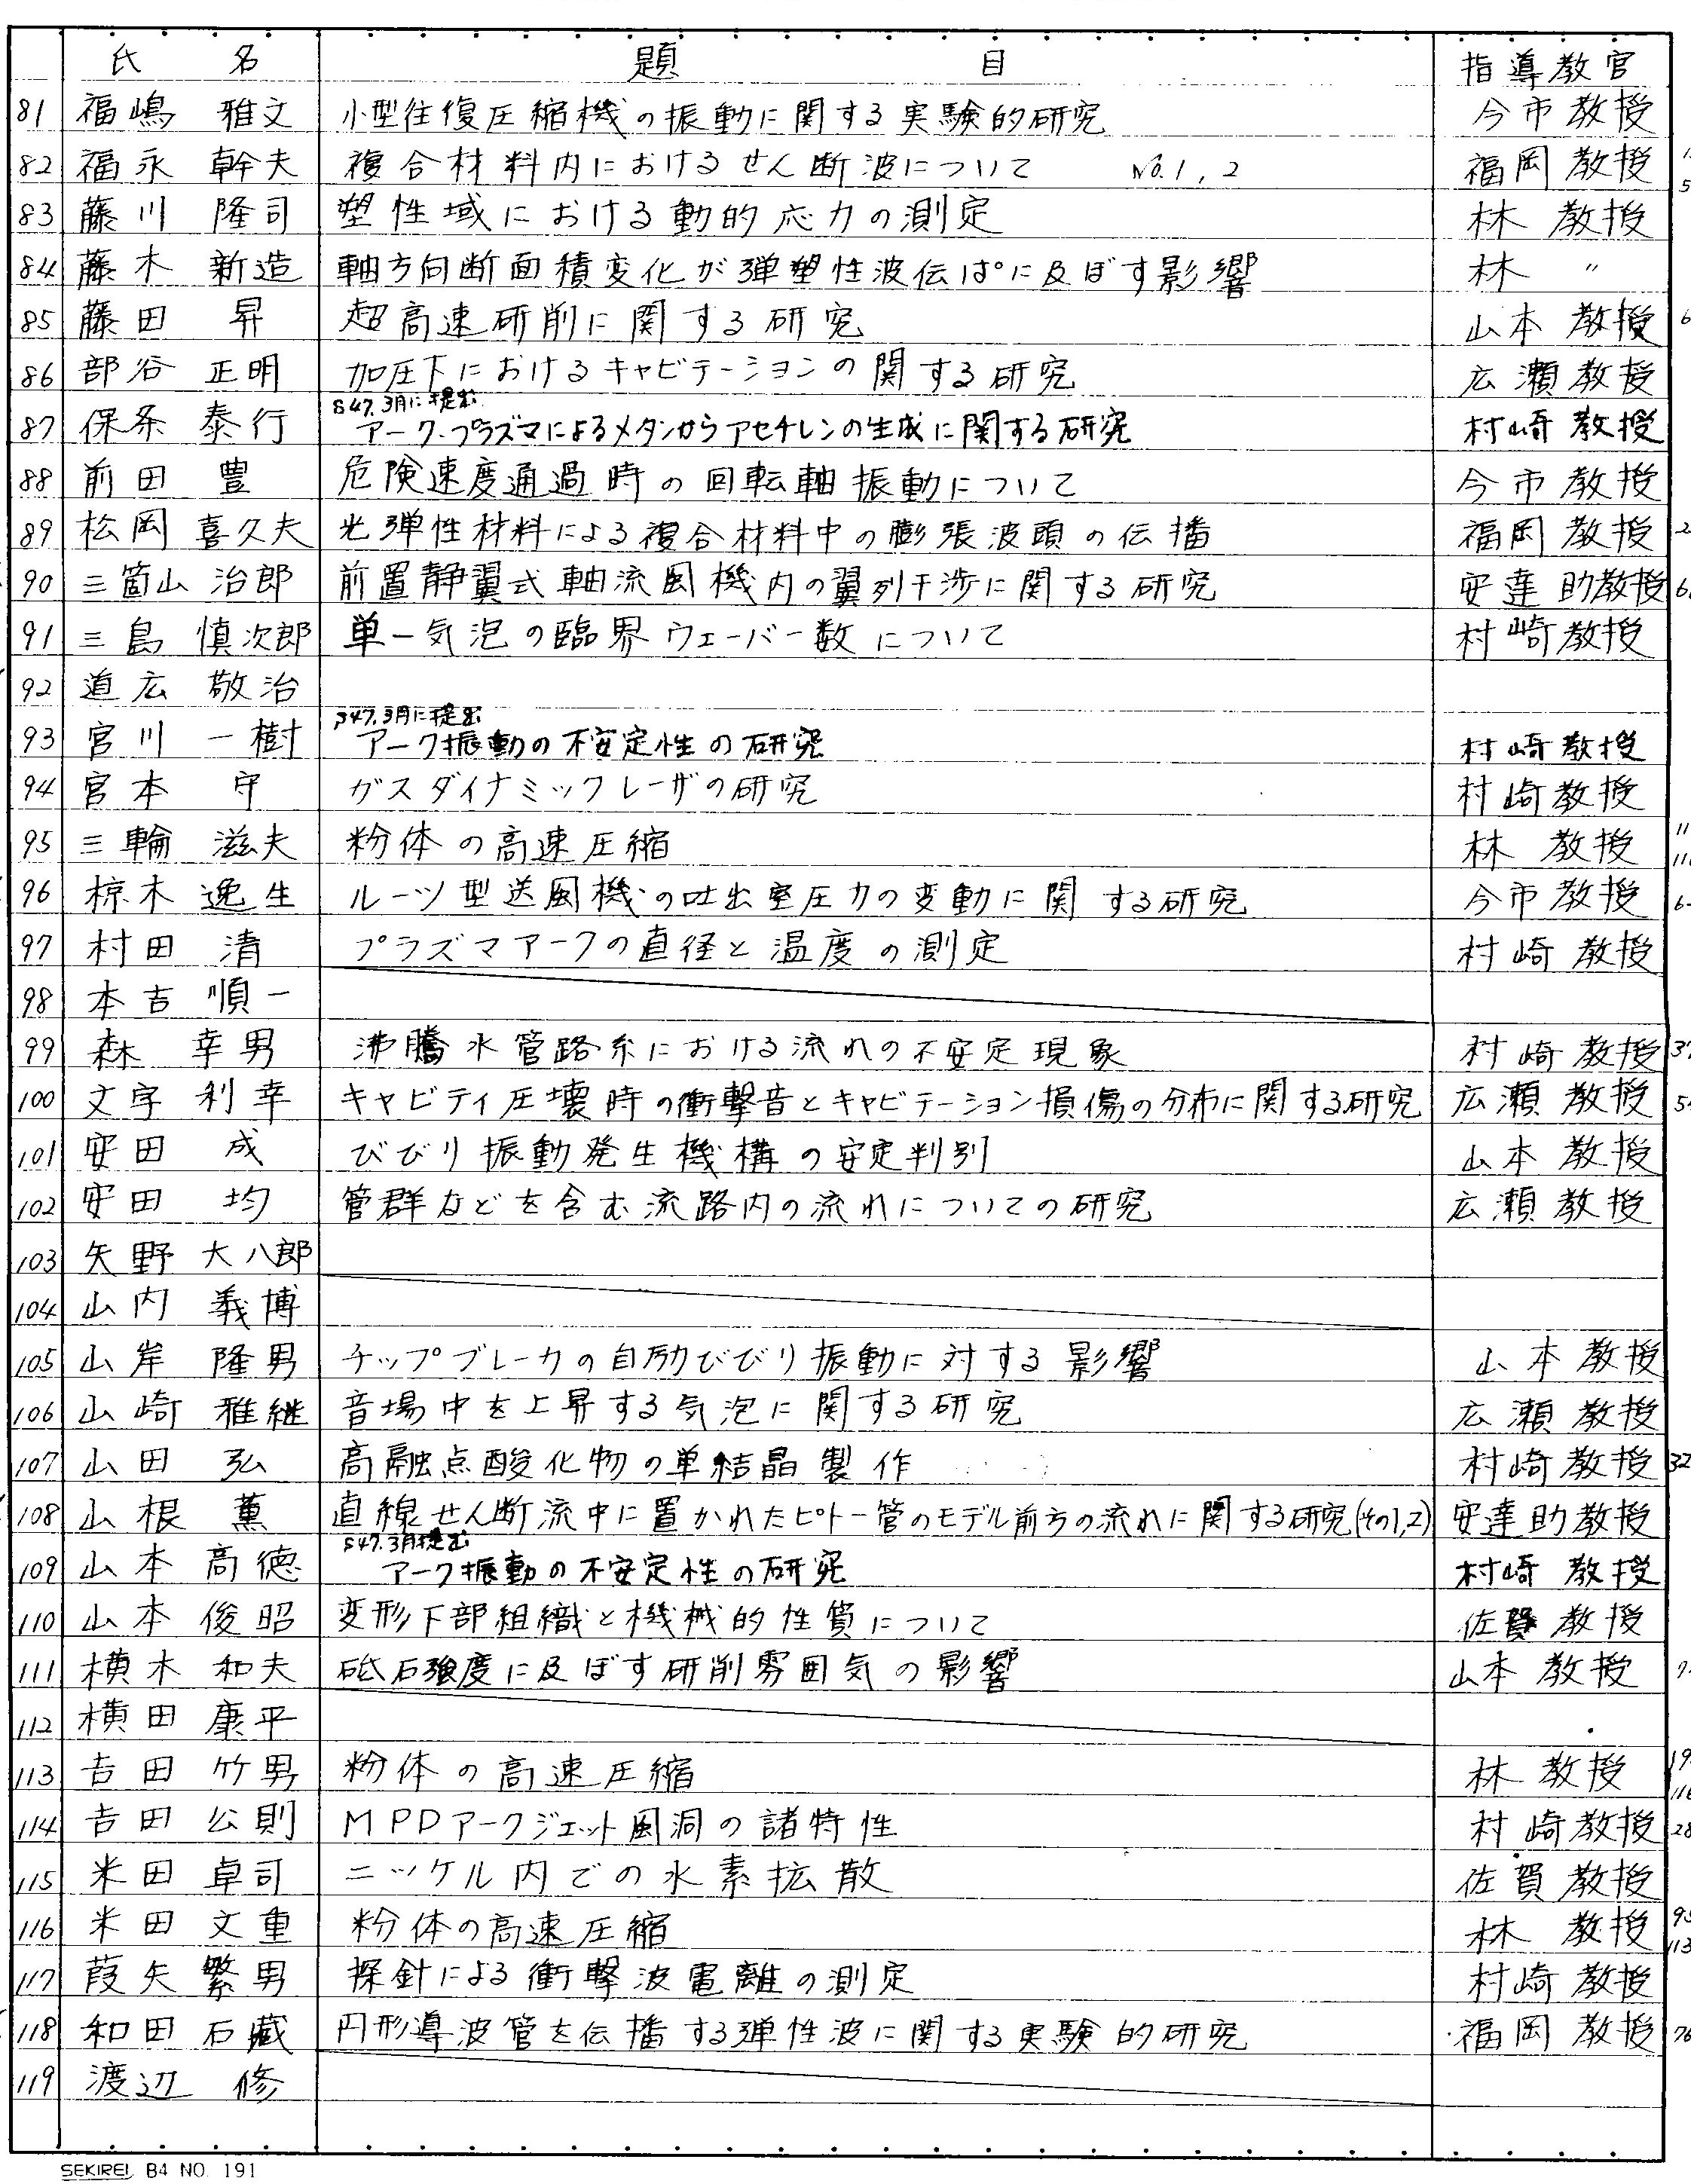 氏 名 題 目 指導教官
81 福嶋 雅文 小型往復圧縮機の振動に関する実験的研究 今市教授
82 福永 幹夫 複合材料内におけるせん断波について No.1, 2 福岡教授
83 藤川 隆司 塑性域における動的応力の測定 林 教授
84 藤木 新造 軸方向断面積変化が弾塑性波伝ぱに及ぼす影響 林 〃
85 藤田 昇 超高速研削に関する研究 山本教授
86 部谷 正明 加圧下におけるキャビテーションの関する研究 広瀬教授
S47.3月に提出
87 保条 泰行 アーク・プラズマによるメタンからアセチレンの生成に関する研究 村崎教授
88 前田 豊 危険速度通過時の回転軸振動について 今市教授
89 松岡 喜久夫 光弾性材料による複合材料中の膨張波頭の伝播 福岡教授
90 三箇山 治郎 前置静翼式軸流風機内の翼列干渉に関する研究 安達助教授
91 三島 慎次郎 単一気泡の臨界ウェーバー数について 村崎教授
92 道広 敬治
S47.3月に提出
93 宮川 一樹 アーク振動の不安定性の研究 村崎教授
94 宮本 守 ガスダイナミックレーザの研究 村崎教授
95 三輪 滋夫 粉体の高速圧縮 林 教授
96 椋木 逸生 ルーツ型送風機の吐出室圧力の変動に関する研究 今市教授
97 村田 清 プラズマアークの直径と温度の測定 村崎教授
98 本吉 順一
99 森 幸男 沸騰水管路系における流れの不安定現象 村崎教授
100 文字 利幸 キャビティ圧壊時の衝撃音とキャビテーション損傷の分布に関する研究 広瀬教授
101 安田 成 びびり振動発生機構の安定判別 山本教授
102 安田 均 管群などを含む流路内の流れについての研究 広瀬教授
103 矢野 大八郎
104 山内 義博
105 山岸 隆男 チップブレーカの自励びびり振動に対する影響 山本教授
106 山崎 雅継 音場中を上昇する気泡に関する研究 広瀬教授
107 山田 弘 高融点酸化物の単結晶製作 村崎教授 32
108 山根 薫 直線せん断流中に置かれたピトー管のモデル前方の流れに関する研究(その1,2) 安達助教授
S47.3月提出
109 山本 高徳 アーク振動の不安定性の研究 村崎教授
110 山本 俊昭 変形下部組織と機械的性質について 佐賀教授
111 横木 和夫 砥石強度に及ぼす研削雰囲気の影響 山本教授
112 横田 康平
113 吉田 竹男 粉体の高速圧縮 林 教授
114 吉田 公則 MPDアークジェット風洞の諸特性 村崎教授 28
115 米田 卓司 ニッケル内での水素拡散 佐賀教授
116 米田 文重 粉体の高速圧縮 林 教授 95 113
117 葭矢 繁男 探針による衝撃波電離の測定 村崎教授
118 和田 石蔵 円形導波管を伝播する弾性波に関する実験的研究 福岡教授 76
119 渡辺 修
SEKIREI B4 NO. 191